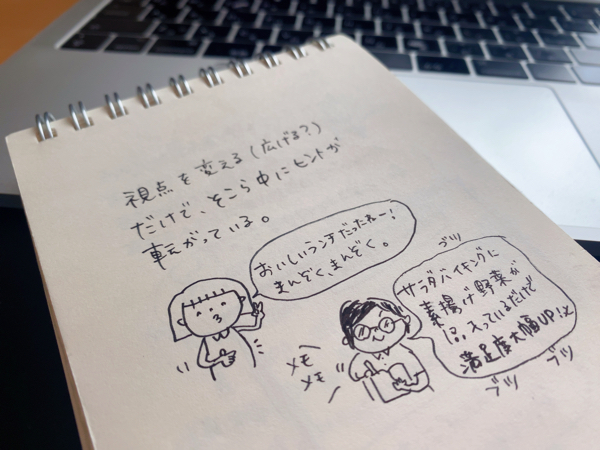 視点を変える(広げる?)
だけで、そこら中にヒントが
転がっている。
おいしいランチだったねー!
まんぞく、まんぞく。
メモ
メモ
ブツ
サラダバイキングに
素揚げ野菜が
入っているだけで
満足度大幅UP!と
ブツ
ブツ